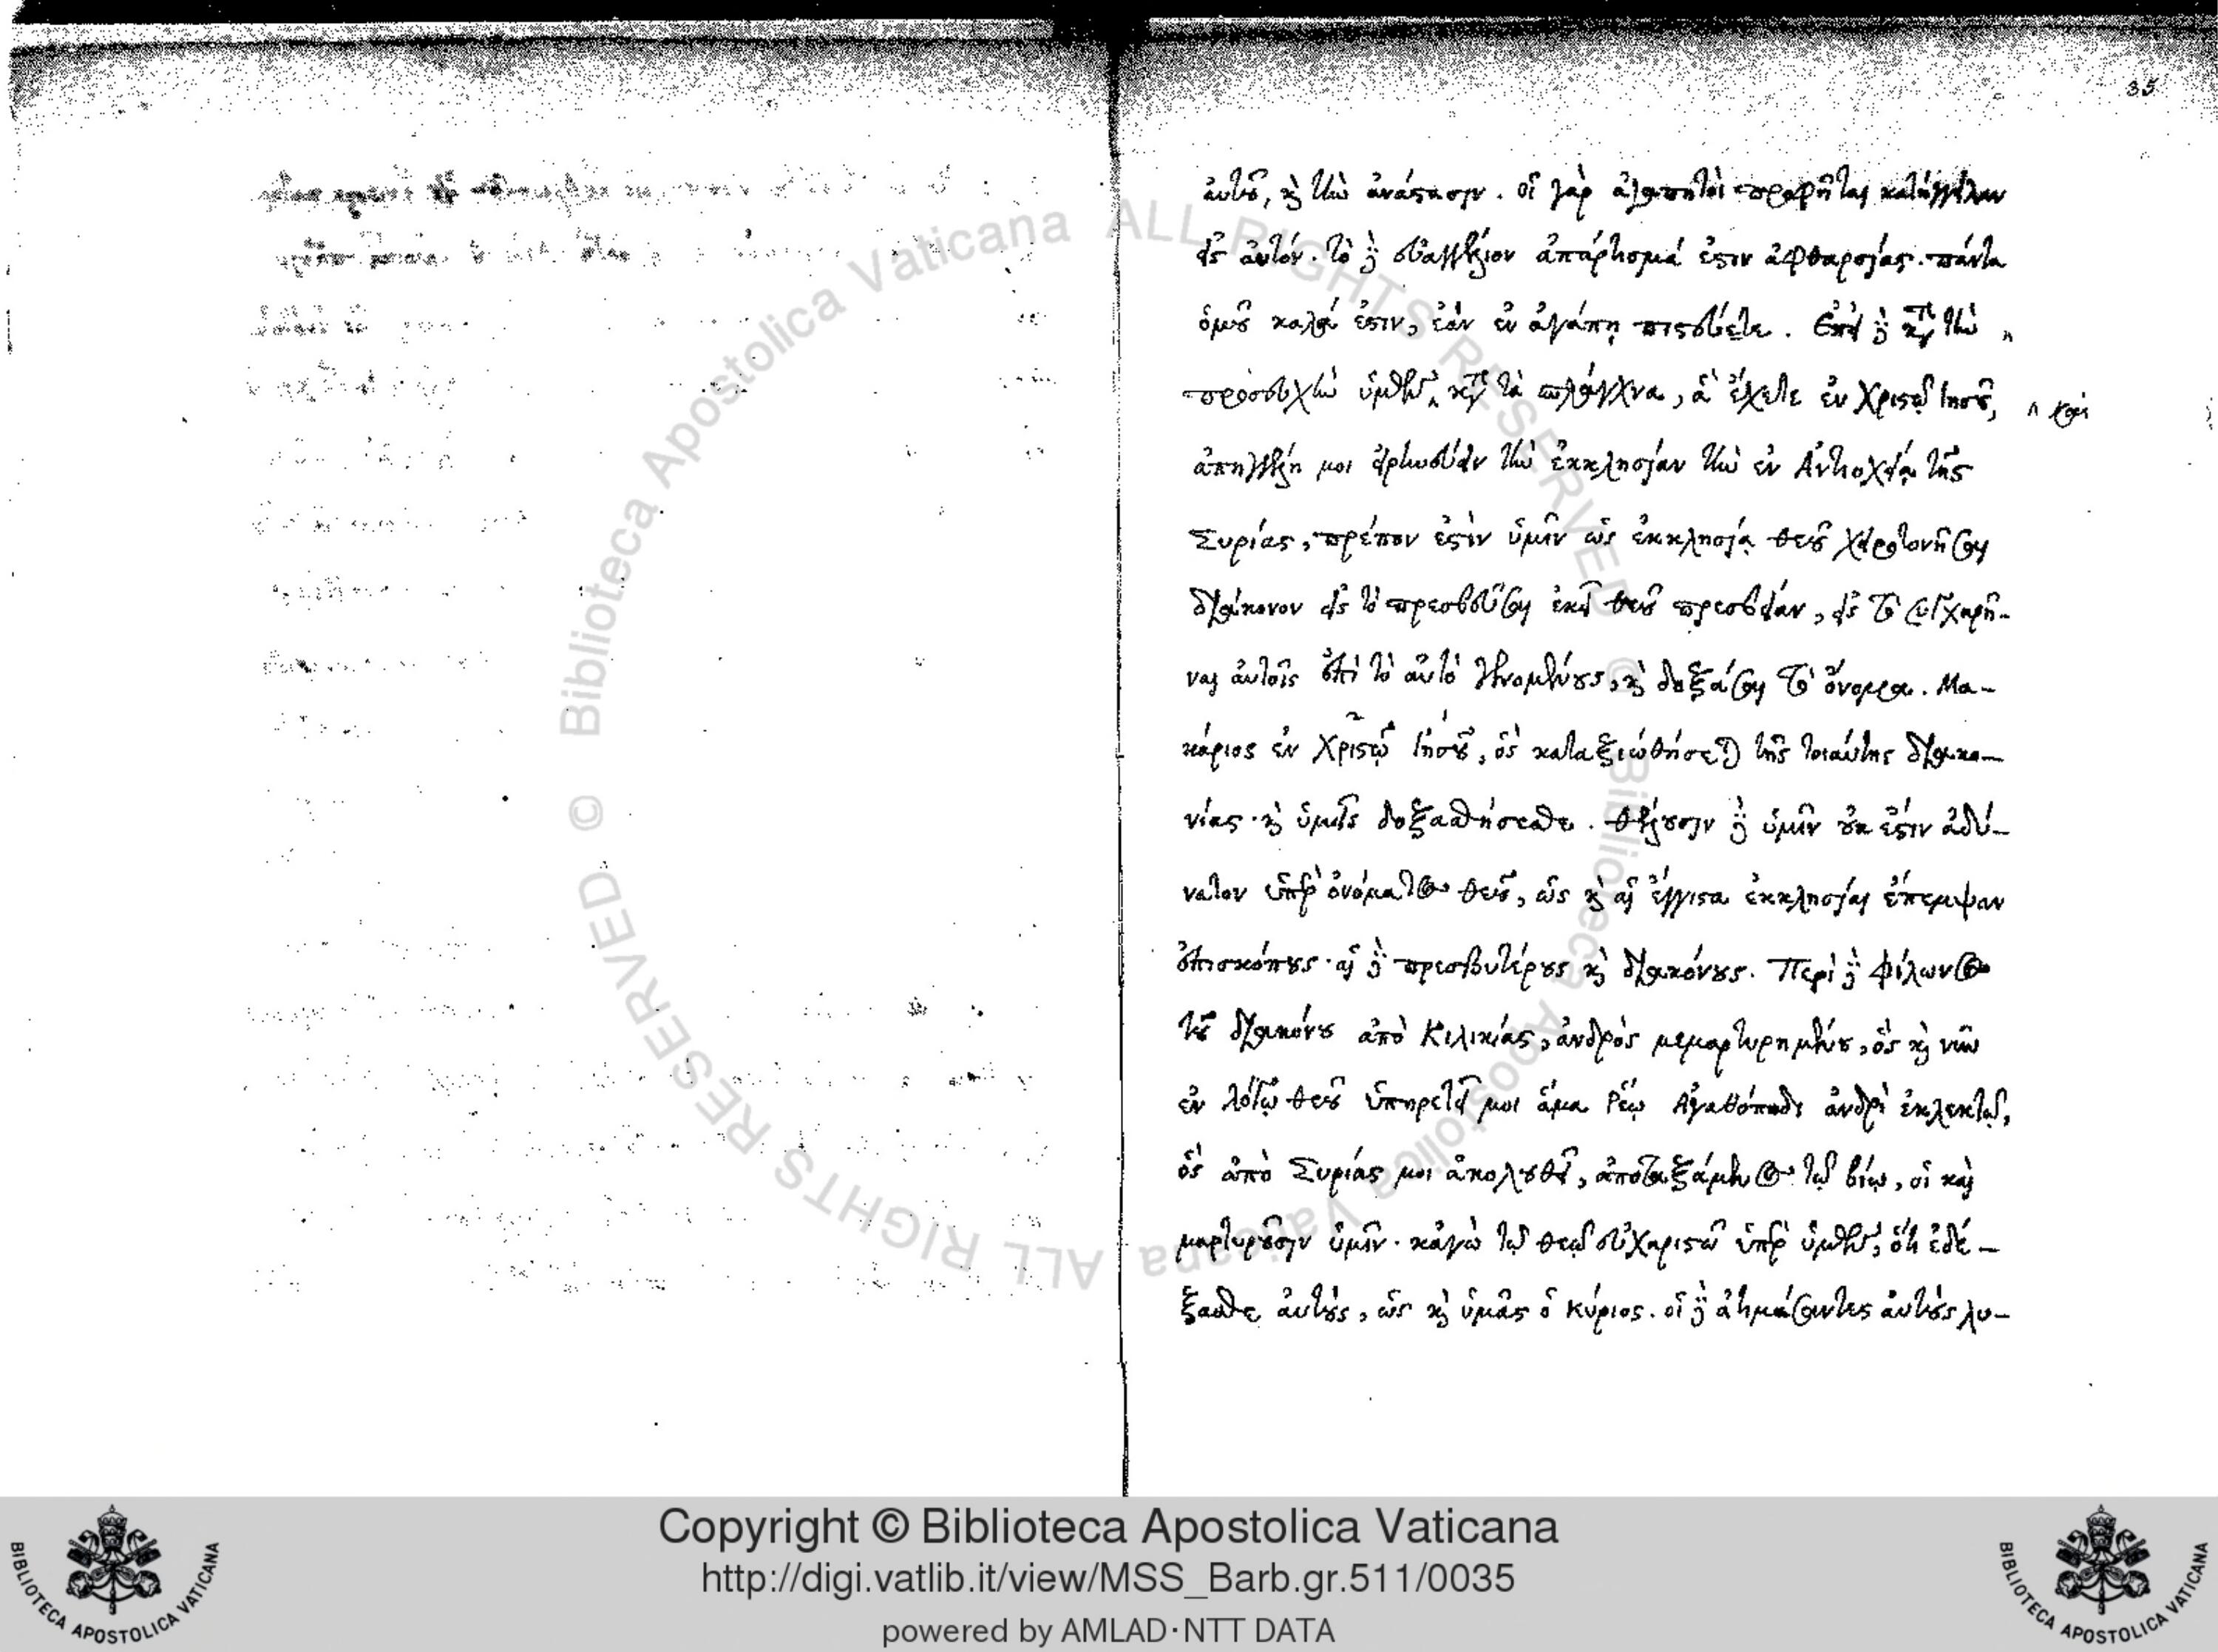 35
αὐτοῦ, καὶ τὴν ἀνάστασιν. οἱ γὰρ ἀγαπητοὶ προφῆται κατήγγειλαν
εἰς αὐτόν. τὸ δὲ εὐαγγέλιον ἀπάρτισμά ἐστιν ἀφθαρσίας. πάντα
ὁμοῦ καλά ἐστιν, ἐὰν ἐν ἀγάπῃ πιστεύετε. Ἐπεὶ δὲ κατὰ τὴν
προσευχὴν ὑμῶν κατὰ τὰ σπλάγχνα, ἃ ἔχετε ἐν Χριστῷ Ιησοῦ,
καὶ
ἀπηγγέλη μοι εἰρηνεύειν τὴν ἐκκλησίαν τὴν ἐν Ἀντιοχείᾳ τῆς
Συρίας, πρέπον ἐστὶν ὑμῖν ὡς ἐκκλησίᾳ θεοῦ χειροτονῆσαι
διάκονον εἰς τὸ πρεσβεῦσαι ἐκεῖ θεοῦ πρεσβείαν, εἰς τὸ συγχαρῆ-
ναι αὐτοῖς ἐπὶ τὸ αὐτὸ γενομένους, καὶ δοξάσαι τὸ ὄνομα. Μα-
κάριος ἐν Χριστῷ Ιησοῦ, ὃς καταξιωθήσεται τῆς τοιαύτης διακο-
νίας. καὶ ὑμεῖς δοξασθήσεσθε. θέλουσιν δὲ ὑμῖν οὐκ ἔστιν ἀδύ-
νατον ὑπὲρ ὀνόματος θεοῦ, ὡς καὶ αἱ ἔγγιστα ἐκκλησίαι ἔπεμψαν
ἐπισκόπους. αἱ δὲ πρεσβυτέρους καὶ διακόνους. Περὶ δὲ Φίλωνος
τοῦ διακόνου ἀπὸ Κιλικίας, ἀνδρὸς μεμαρτυρημένου, ὃς καὶ νῦν
ἐν λόγῳ θεοῦ ὑπηρετεῖ μοι ἅμα Ρέῳ Ἀγαθόποδι ἀνδρὶ ἐκλεκτῷ,
ὃς ἀπὸ Συρίας μοι ἀκολουθεῖ, ἀποταξάμενος τῷ βίῳ, οἳ καὶ
μαρτυροῦσιν ὑμῖν. κἀγὼ τῷ θεῷ εὐχαριστῶ ὑπὲρ ὑμῶν, ὅτι ἐδέ-
ξασθε αὐτοὺς, ὡς καὶ ὑμᾶς ὁ κύριος. οἱ δὲ ἀτιμάσαντες αὐτοὺς λυ-
© Biblioteca Apostolica Vaticana ALL RIGHTS RESERVED © Biblioteca Apostolica Vaticana ALL RIGHTS RESERVED
Copyright © Biblioteca Apostolica Vaticana
http://digi.vatlib.it/view/MSS_Barb.gr.511/0035
powered by AMLAD·NTT DATA
BIBLIOTECA APOSTOLICA VATICANA
BIBLIOTECA APOSTOLICA VATICANA